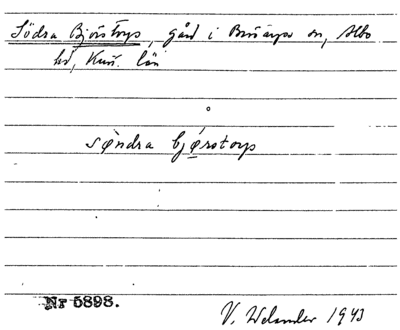 Södra Björstorp, gård i Brösarps sn, Albo
hd, Krist. län
söndra bjørstorp
Nr 5898.
V. Welander 1943